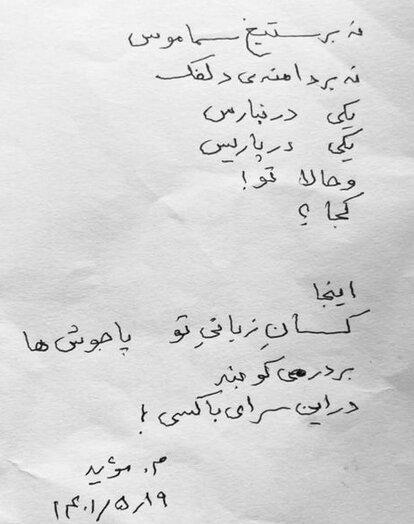 نه بر ستیغ سماموس
نه بر دامنه‌ی دلفک
یکی در بنارس
یکی در پاریس
و حالا تو !
کجا ؟
اینجا
کسانِ زبانیِ تو پاجوش ها
بر در می کوبند
در این سرای با کسی !
م. مؤید
۱۴۰۱/۵/۱۹